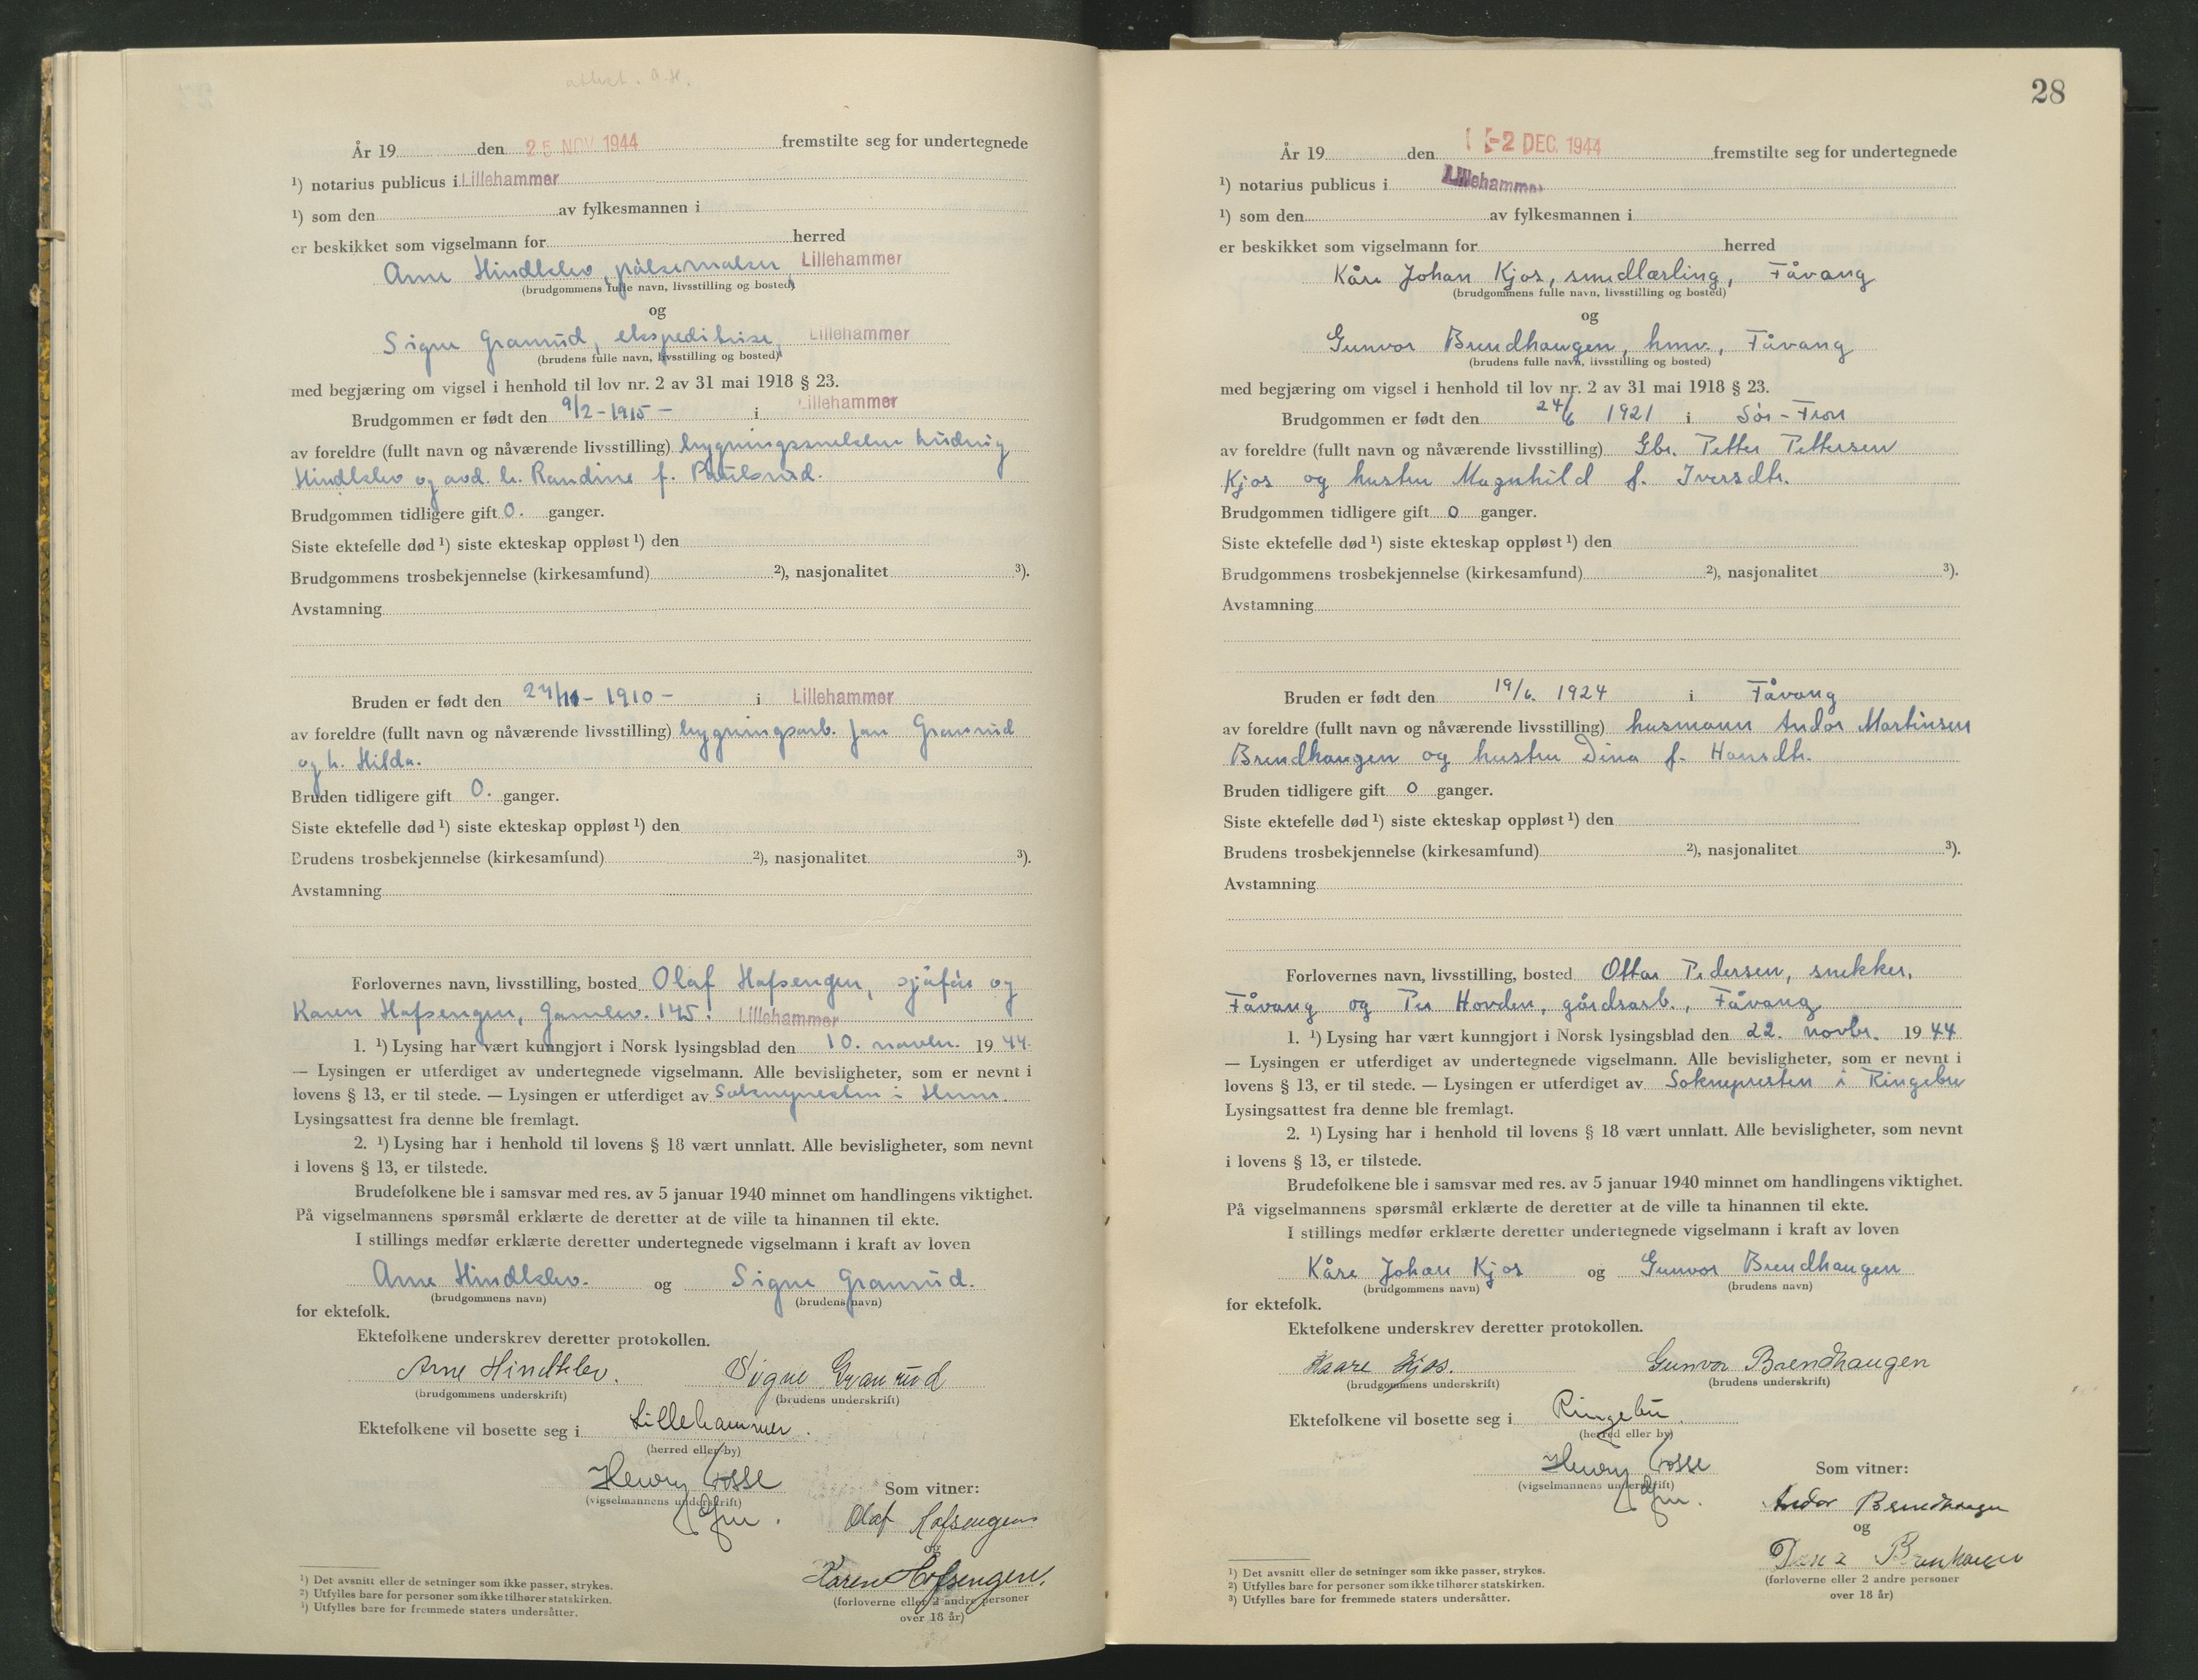 attest. A.H.
År 19 den 25 NOV 1944 fremstilte seg for undertegnede
¹) notarius publicus i Lillehammer
¹) som den av fylkesmannen i
er beskikket som vigselmann for herred
Arne Hindklev, pølsemaker, Lillehammer
(brudgommens fulle navn, livsstilling og bosted)
og
Signe Granrud, ekspeditrise, Lillehammer
(brudens fulle navn, livsstilling og bosted)
med begjæring om vigsel i henhold til lov nr. 2 av 31 mai 1918 § 23.
Brudgommen er født den 9/2 - 1915 - i Lillehammer
av foreldre (fullt navn og nåværende livsstilling) bygningssnekker Ludvig
Hindklev og avd. h. Randine f. Paulsrud.
Brudgommen tidligere gift 0. ganger.
Siste ektefelle død ¹) siste ekteskap oppløst ¹) den
Brudgommens trosbekjennelse (kirkesamfund) ²), nasjonalitet ³).
Avstamning
Bruden er født den 24/11 - 1910 - i Lillehammer
av foreldre (fullt navn og nåværende livsstilling) bygningsarb. Jan Granrud
og h. Hilda.
Bruden tidligere gift 0. ganger.
Siste ektefelle død ¹) siste ekteskap oppløst ¹) den
Brudens trosbekjennelse (kirkesamfund) ²), nasjonalitet ³).
Avstamning
Forlovernes navn, livsstilling, bosted Olaf Hafsengen, sjåfør og
Karen Hafsengen, Gamlev. 145. Lillehammer
1. ¹) Lysing har vært kunngjort i Norsk lysingsblad den 10. novbr. 1944.
— Lysingen er utferdiget av undertegnede vigselmann. Alle bevisligheter, som er nevnt i
lovens § 13, er til stede. — Lysingen er utferdiget av Soknepresten i
Lysingsattest fra denne ble fremlagt.
2. ¹) Lysing har i henhold til lovens § 18 vært unnlatt. Alle bevisligheter, som nevnt
i lovens § 13, er tilstede.
Brudefolkene ble i samsvar med res. av 5 januar 1940 minnet om handlingens viktighet.
På vigselmannens spørsmål erklærte de deretter at de ville ta hinannen til ekte.
I stillings medfør erklærte deretter undertegnede vigselmann i kraft av loven
Arne Hindklev. og Signe Granrud.
(brudgommens navn) (brudens navn)
for ektefolk.
Ektefolkene underskrev deretter protokollen.
Arne Hindklev. Signe Granrud
(brudgommens underskrift) (brudens underskrift)
Ektefolkene vil bosette seg i Lillehammer.
(herred eller by)
Henry Fosse
(vigselmannens underskrift) Som vitner:
Olaf Hafsengen
og
Karen Hofsengen.
(forloverne eller 2 andre personer
over 18 år)
¹) Det avsnitt eller de setninger som ikke passer, strykes.
²) Utfylles bare for personer som ikke tilhører statskirken.
³) Utfylles bare for fremmede staters undersåtter.
28
År 19 den -2 DEC. 1944 fremstilte seg for undertegnede
¹) notarius publicus i Lillehammer
¹) som den av fylkesmannen i
er beskikket som vigselmann for herred
Kåre Johan Kjos, smedlærling, Fåvang
(brudgommens fulle navn, livsstilling og bosted)
og
Gunvor Brendhaugen, hmv., Fåvang
(brudens fulle navn, livsstilling og bosted)
med begjæring om vigsel i henhold til lov nr. 2 av 31 mai 1918 § 23.
Brudgommen er født den 24/6 1921 i Sør-Fron
av foreldre (fullt navn og nåværende livsstilling) Gbr. Petter Pettersen
Kjos og hustru Magnhild f. Iversdtr.
Brudgommen tidligere gift 0 ganger.
Siste ektefelle død ¹) siste ekteskap oppløst ¹) den
Brudgommens trosbekjennelse (kirkesamfund) ²), nasjonalitet ³).
Avstamning
Bruden er født den 19/6. 1924 i Fåvang
av foreldre (fullt navn og nåværende livsstilling) husmann Andor Martinsen
Brendhaugen og hustru Dina f. Hansdtr.
Bruden tidligere gift 0 ganger.
Siste ektefelle død ¹) siste ekteskap oppløst ¹) den
Brudens trosbekjennelse (kirkesamfund) ²), nasjonalitet ³).
Avstamning
Forlovernes navn, livsstilling, bosted Ottar Pedersen, snekker,
Fåvang og Per Hovden, gårdsarb., Fåvang
1. ¹) Lysing har vært kunngjort i Norsk lysingsblad den 22. novbr. 1944
— Lysingen er utferdiget av undertegnede vigselmann. Alle bevisligheter, som er nevnt i
lovens § 13, er til stede. — Lysingen er utferdiget av Soknepresten i Ringebu
Lysingsattest fra denne ble fremlagt.
2. ¹) Lysing har i henhold til lovens § 18 vært unnlatt. Alle bevisligheter, som nevnt
i lovens § 13, er tilstede.
Brudefolkene ble i samsvar med res. av 5 januar 1940 minnet om handlingens viktighet.
På vigselmannens spørsmål erklærte de deretter at de ville ta hinannen til ekte.
I stillings medfør erklærte deretter undertegnede vigselmann i kraft av loven
Kåre Johan Kjos og Gunvor Brendhaugen
(brudgommens navn) (brudens navn)
for ektefolk.
Ektefolkene underskrev deretter protokollen.
Kaare Kjos. Gunvor Brendhaugen
(brudgommens underskrift) (brudens underskrift)
Ektefolkene vil bosette seg i Ringebu.
(herred eller by)
Henry Fosse
(vigselmannens underskrift) Som vitner:
Andor Brendhaugen
og
(forloverne eller 2 andre personer
over 18 år)
¹) Det avsnitt eller de setninger som ikke passer, strykes.
²) Utfylles bare for personer som ikke tilhører statskirken.
³) Utfylles bare for fremmede staters undersåtter.